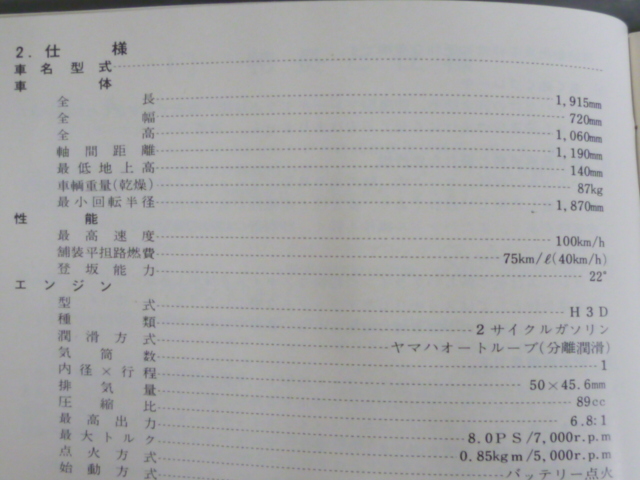 2. 仕様
車名型式
車体
全長 1,915mm
全幅 720mm
全高 1,060mm
軸間距離 1,190mm
最低地上高 140mm
車輌重量(乾燥) 87kg
最小回転半径 1,870mm
性能
最高速度 100km/h
舗装平担路燃費 75km/ℓ(40km/h)
登坂能力 22°
エンジン
型式 H3D
種類 2サイクルガソリン
潤滑方式 ヤマハオートルーブ(分離潤滑)
気筒数 1
内径×行程 50×45.6mm
排気量 89cc
圧縮比 6.8:1
最高出力 8.0PS/7,000r.p.m
最大トルク 0.85kgm/5,000r.p.m
点火方式 バッテリー点火
始動方式